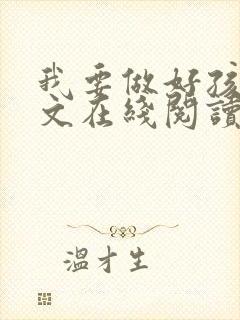 我要做好孩
文在綫閱讀
溫才生